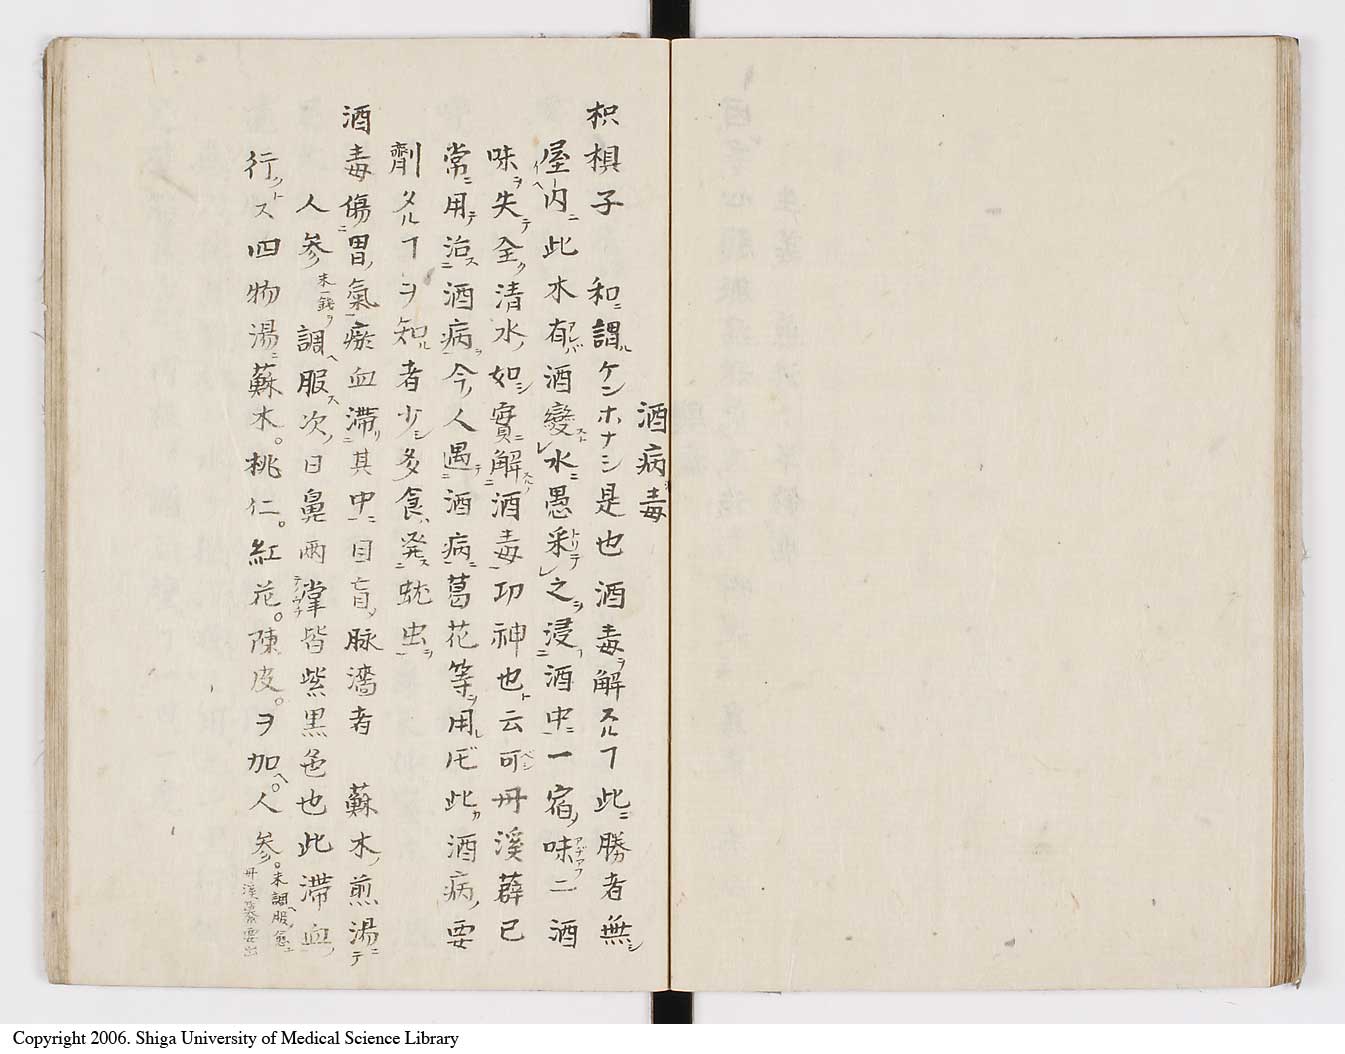 酒病毒
枳椇子　和ニ謂ルケンホナシ是也酒毒ヲ解スルヿ此ニ勝者無シ
屋内ニ此木有レバ酒變スト水ニ愚采トリテ之ヲ浸シ酒中ニ一宿ノ味アヂアフニ酒
味ヲ失テ全ク清水ノ如シ實ニ解スルノ酒毒功神也ト云可ベシ丹溪薜已
常ニ用テ治ス酒病ヲ今ノ人遇テ酒病ニ葛花等ヲ用レ𪜈此カ酒病ノ要
劑タルヿヲ知ル者少シ多食ハ発ス蚘虫ヲ
酒毒傷ニ胃ノ氣瘀血滞リ其中ニ目盲メ脉濇者　蘇木ノ煎湯ニテ
人参末一錢ヲ調ヘ服ス次ノ日鼻兩掌テノウチ皆紫黒色也此滞血ノ
行ット ス四物湯ニ蘇木。桃仁。紅花。陳皮。ヲ加ヘ。人参。末調ヘ服ノ愈ユ
丹溪纂要出
Copyright 2006. Shiga University of Medical Science Library